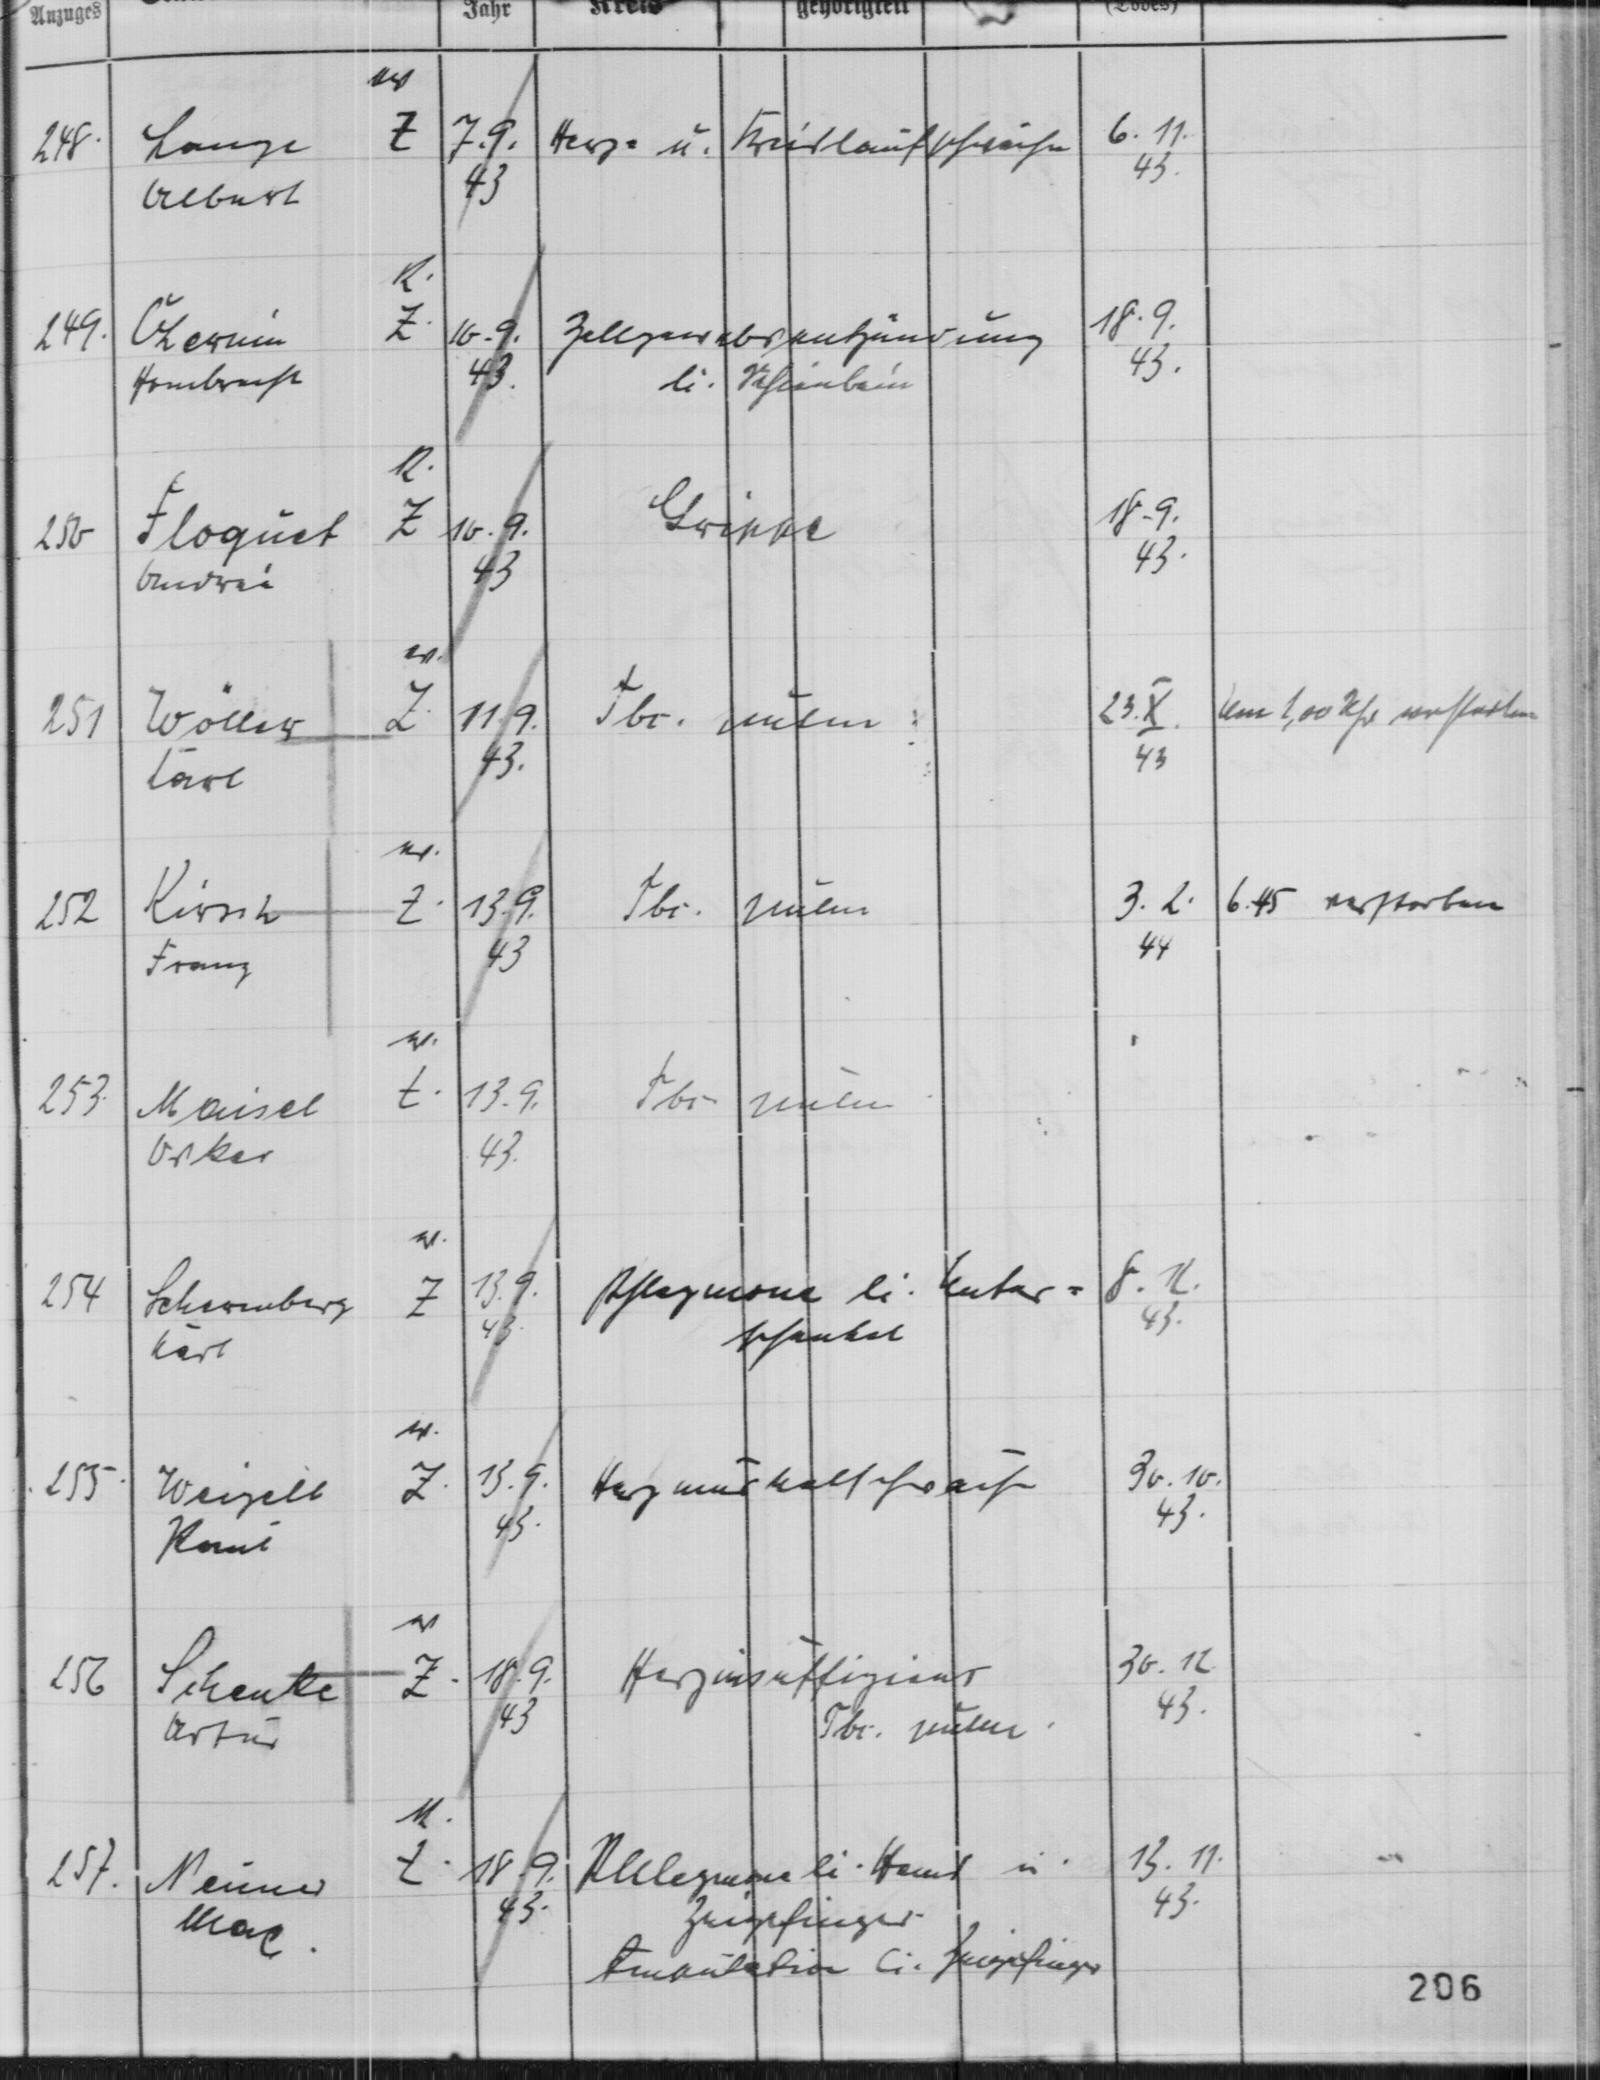 Anzuges Jahr Kreis gehörigkeit (Todes)
w
248. Lange Z 7.9. Herz- u. Kreislaufschwäche 6. 11.
Albert 43 43.
R.
249. Z. 10.9. Zellgewebsentzündung 18.9.
43. li. Schienbein 43.
R.
250 Floquet Z 10.9. Grippe 18.9.
43 43.
w.
251 Wöller Z. 11.9. Tbc. pulm. 23.X. Um 1,00 Uhr verstorben
Karl 43. 43
w.
252 Kirsch Z. 13.9. Tbc. pulm 3. 2. 6.45 verstorben
Franz 43 44
w.
253. Maisel Z. 13.9. Tbc pulm
Oskar 43.
w.
254 Scharenberg Z 13.9. Phlegmone li. Unter- 8. 12.
Karl 43. schenkel 43.
w.
255. Weigelt Z. 13.9. Herzmuskelschwäche 30. 10.
43. 43.
w
256 Schenke Z. 18.9. Herzinsuffizienz 30. 12.
Artur 43 Tbc. pulm. 43.
M.
257. Z. 18.9. Phlegmone li. Hand u. 13. 11.
Max. 43. Zeigefinger 43.
Amputation li. Zeigefinger
206